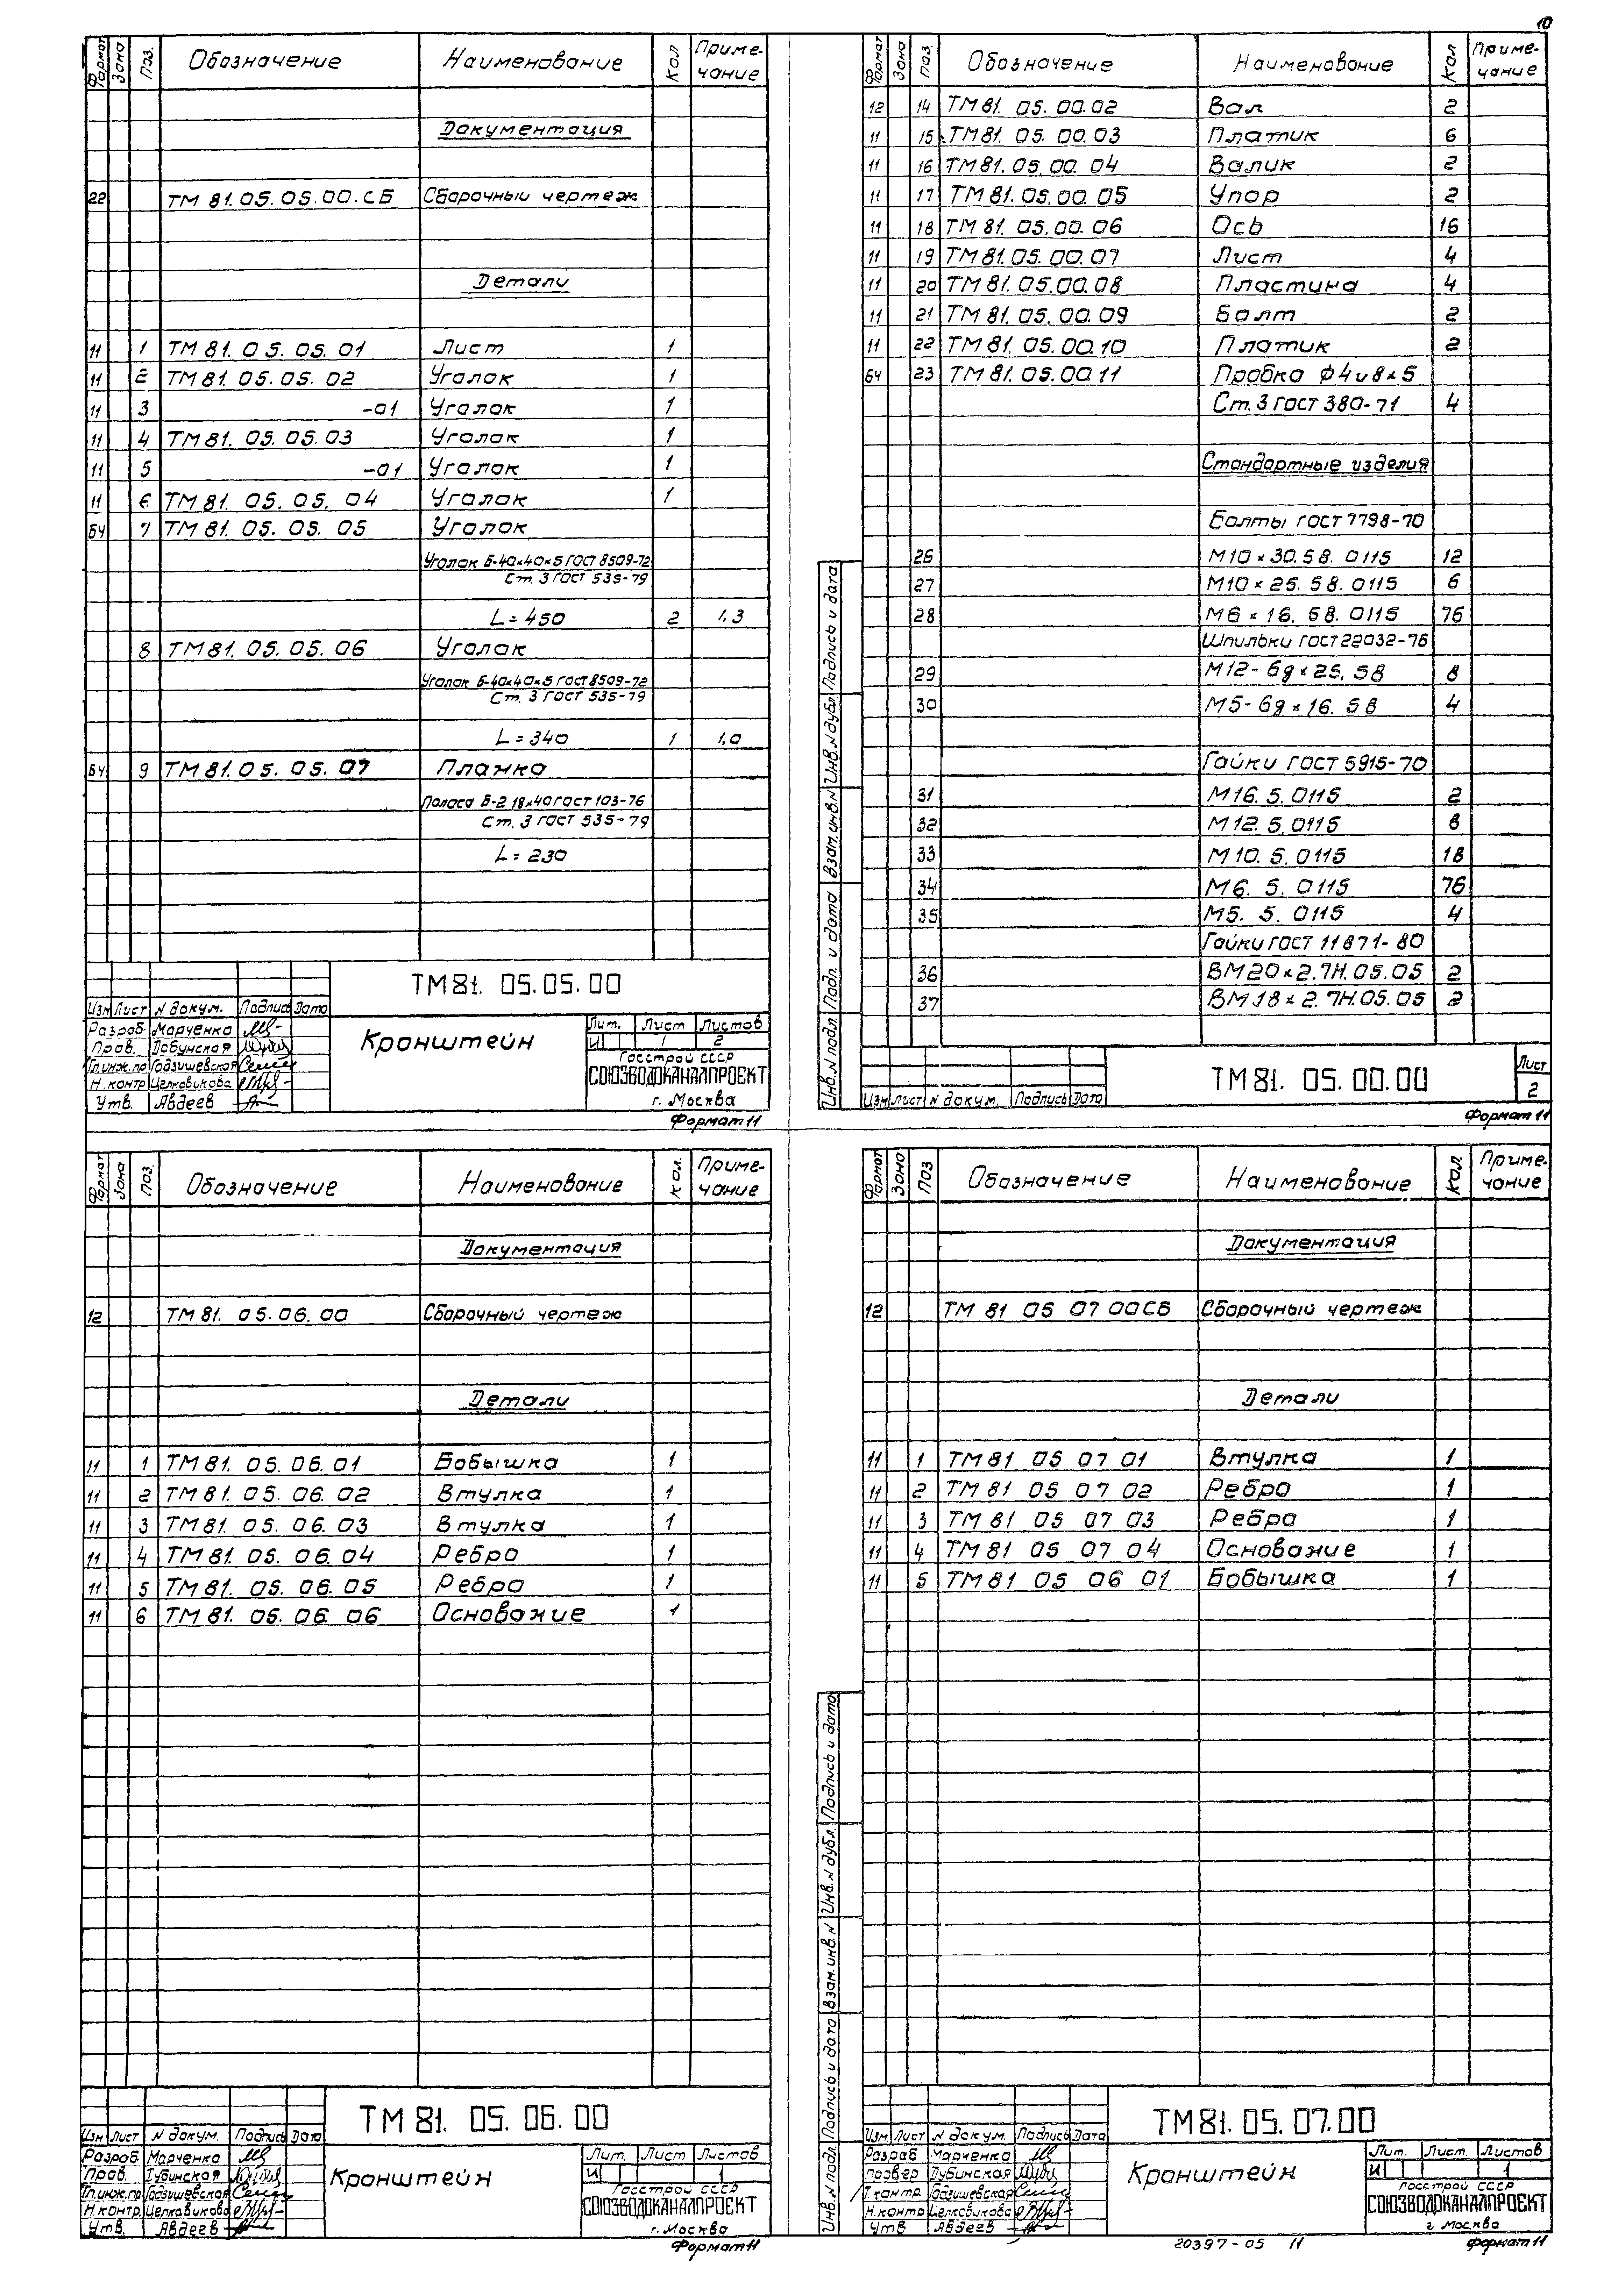 10
Формат Зона Поз. Обозначение Наименование Кол Приме-
чание
Документация
22 ТМ 81.05.05.00.СБ Сборочный чертеж
Детали
11 1 ТМ 81.05.05.01 Лист 1
11 2 ТМ 81.05.05.02 Уголок 1
11 3 -01 Уголок 1
11 4 ТМ 81.05.05.03 Уголок 1
11 5 -01 Уголок 1
11 6 ТМ 81.05.05.04 Уголок 1
БЧ 7 ТМ 81.05.05.05 Уголок
Уголок Б-40×40×5 ГОСТ 8509-72
Ст. 3 ГОСТ 535-79
L=450 2 1,3
8 ТМ 81.05.05.06 Уголок
Уголок Б-40×40×5 ГОСТ 8509-72
Ст. 3 ГОСТ 535-79
L=340 1 1,0
БЧ 9 ТМ 81.05.05.07 Планка
Полоса Б-2 18×40 ГОСТ 103-76
Ст. 3 ГОСТ 535-79
L=230
ТМ 81.05.05.00
Изм Лист N докум. Подпись Дата
Разраб Марченко
Пров. Дабунская
Гл.инж.пр Годзишевская
Н.контр Целковикова
Утв. Авдеев
Кронштейн
Лит. Лист Листов
И 1 2
Госстрой СССР
СОЮЗВОДОКАНАЛПРОЕКТ
г. Москва
Формат 11
Формат Зона Поз. Обозначение Наименование Кол Приме-
чание
12 14 ТМ 81.05.00.02 Вал 2
11 15 ТМ 81.05.00.03 Платик 6
11 16 ТМ 81.05.00.04 Валик 2
11 17 ТМ 81.05.00.05 Упор 2
11 18 ТМ 81.05.00.06 Ось 16
11 19 ТМ 81.05.00.07 Лист 4
11 20 ТМ 81.05.00.08 Пластина 4
11 21 ТМ 81.05.00.09 Болт 2
11 22 ТМ 81.05.00.10 Платик 2
БЧ 23 ТМ 81.05.00.11 Пробка ф4и8×5
Ст. 3 ГОСТ 380-71 4
Стандартные изделия
Болты ГОСТ 7798-70
26 М10×30.58.0115 12
27 М10×25.58.0115 6
28 М6×16.58.0115 76
Шпильки ГОСТ 22032-76
29 М12-6g×25,58 8
30 М5-6g×16.58 4
Гайки ГОСТ 5915-70
31 М16.5.0115 2
32 М12.5.0115 8
33 М10.5.0115 18
34 М6.5.0115 76
35 М5.5.0115 4
Гайки ГОСТ 11871-80
36 ВМ20×2.7Н.05.05 2
37 ВМ18×2.7Н.05.05 2
Инв.N подл. Подп. и дата Взам.инв.N Инв.N дубл. Подпись и дата
Изм Лист N докум. Подпись Дата
ТМ 81.05.00.00
Лист
2
Формат 11
Формат Зона Поз. Обозначение Наименование Кол. Приме-
чание
Документация
12 ТМ 81.05.06.00 Сборочный чертеж
Детали
11 1 ТМ 81.05.06.01 Бобышка 1
11 2 ТМ 81.05.06.02 Втулка 1
11 3 ТМ 81.05.06.03 Втулка 1
11 4 ТМ 81.05.06.04 Ребро 1
11 5 ТМ 81.05.06.05 Ребро 1
11 6 ТМ 81.05.06.06 Основание 1
ТМ 81.05.06.00
Изм Лист N докум. Подпись Дата
Разраб Марченко
Пров. Дубинская
Гл.инж.пр Годзишевская
Н.контр. Целковикова
Утв. Авдеев
Кронштейн
Лит. Лист Листов
И 1
Госстрой СССР
СОЮЗВОДОКАНАЛПРОЕКТ
г. Москва
Формат 11
Формат Зона Поз Обозначение Наименование Кол. Приме-
чание
Документация
12 ТМ 81 05 07 00СБ Сборочный чертеж
Детали
11 1 ТМ 81 05 07 01 Втулка 1
11 2 ТМ 81 05 07 02 Ребро 1
11 3 ТМ 81 05 07 03 Ребро 1
11 4 ТМ 81 05 07 04 Основание 1
11 5 ТМ 81 05 06 01 Бобышка 1
Инв.N подл. Подпись и дата Взам.инв.N Инв.N дубл. Подпись и дата
ТМ 81.05.07.00
Изм Лист N докум. Подпись Дата
Разраб Марченко
Провер Дубинская
Т.контр. Годзишевская
Н.контр Целковикова
Утв Авдеев
Кронштейн
Лит. Лист. Листов
И 1
Госстрой СССР
СОЮЗВОДОКАНАЛПРОЕКТ
г Москва
20397-05 11
Формат 11